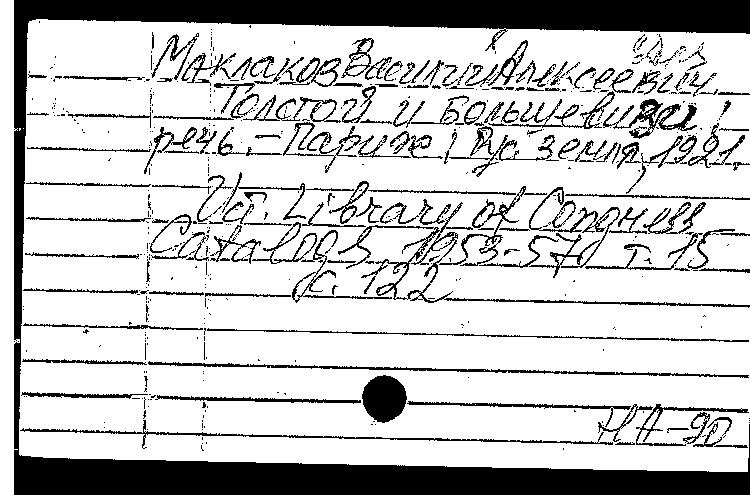 Маклаков Василий Алексеевич.
Толстой и большевизм:
речь. – Париж: Рус. земля, 1921.
Ист. Library of Congress
Catalogs 1953-57 т. 15
с. 122
НА-90